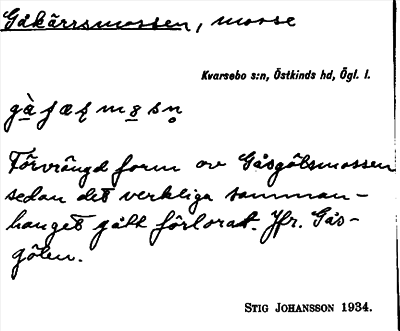 Gåkärrsmossen, mosse
Kvarsebo s:n, Östkinds hd, Ögl. l.
Förvrängd form av Gåsgölsmossen
sedan det verkliga samman-
hanget gått förlorat. Jfr. Gås-
gölen.
STIG JOHANSSON 1934.